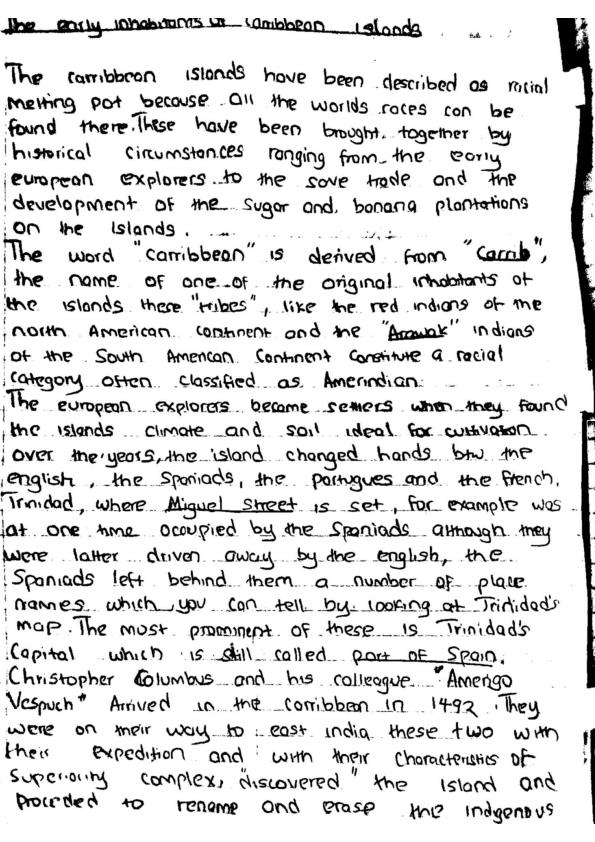 The early inhabitants of Caribbean Islands
The carribbean islands have been described as racial
melting pot because all the worlds races can be
found there. These have been brought together by
historical circumstances ranging from the early
european explorers to the save trade and the
development of the sugar and banana plantations
on the islands.
The word "carribbean" is derived from "Carrib",
the name of one of the original inhabitants of
the islands there "tribes", like the red indians of the
north American continent and the "Arawak" indians
of the South American Continent constitute a racial
category often classified as Amerindian.
The european explorers became settlers when they found
the islands climate and soil ideal for cultivation.
over the years, the island changed hands btw the
english, the Spaniads, the portugues and the french.
Trinidad, where Miguel Street is set, for example was
at one time occupied by the Spaniads although they
were latter driven away by the english, the
Spaniads left behind them a number of place
names which you can tell by looking at Trinidad's
map. The most prominent of these is Trinidad's
Capital which is still called port of Spain.
Christopher Columbus and his colleague "Amerigo
Vespuch" Arrived in the carribbean in 1492. They
were on their way to east india these two with
their expedition and with their characteristics of
superiority complex, "discovered" the island and
proceded to rename and erase the indgenous